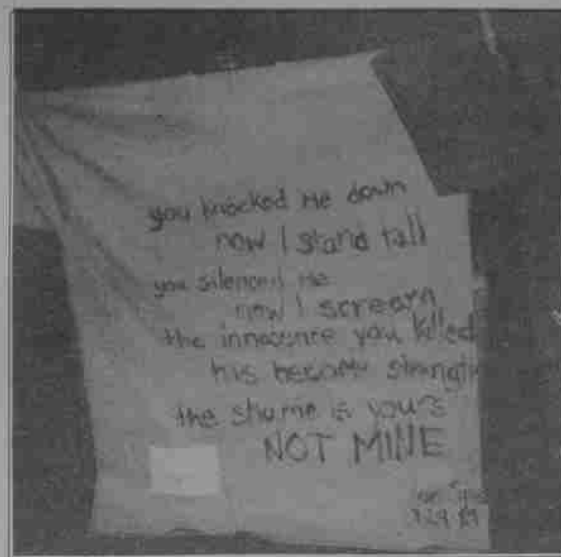 you knocked me down
now I stand tall
you silenced me
now I scream
the innocence you killed
has become strength
the shame is yours
NOT MINE